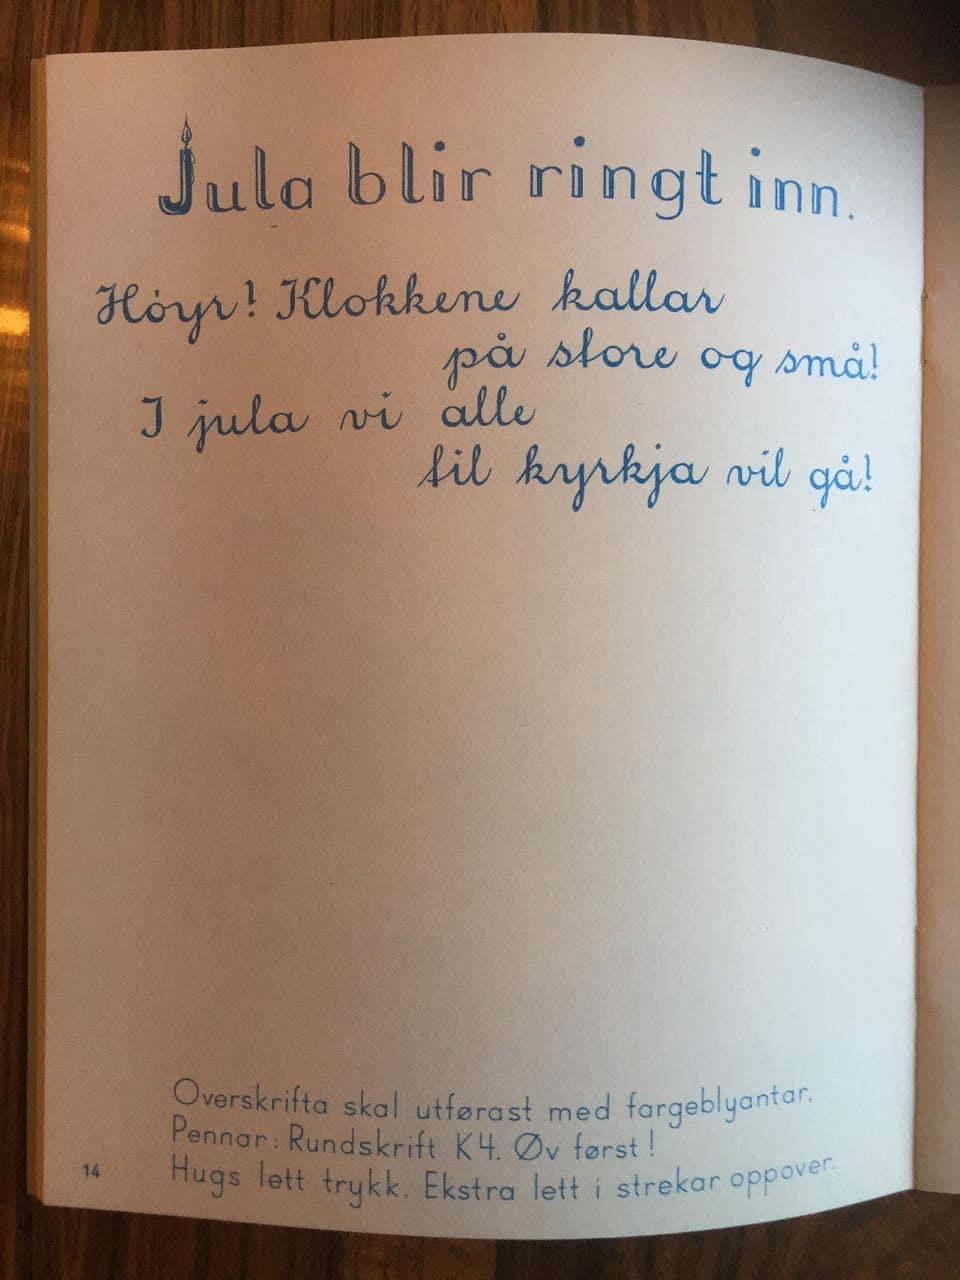 Jula blir ringt inn.
Høyr! Klokkene kallar
på store og små!
I jula vi alle
til kyrkja vil gå!
Overskrifta skal utførast med fargeblyantar.
Pennar: Rundskrift K4. Øv først!
Hugs lett trykk. Ekstra lett i strekar oppover.
14